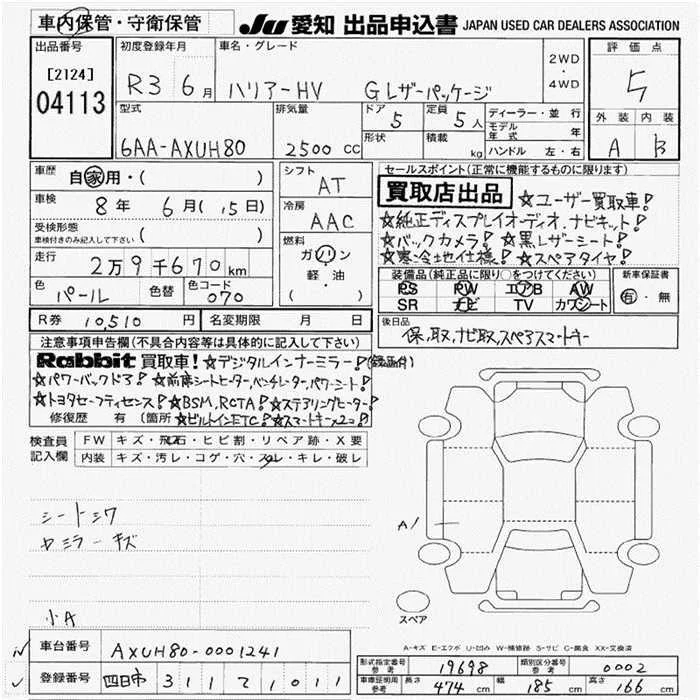 車内保管・守衛保管 JU 愛知 出品申込書 JAPAN USED CAR DEALERS ASSOCIATION
出品番号 初度登録年月 車名・グレード 2WD・4WD 評価点
[2124] R3 6月 ハリアーHV Gレザーパッケージ 5
04113 型式 排気量 ドア 5 定員 5人 ディーラー・並行 外装 内装
6AA-AXUH80 2500 CC 形状 積載 kg モデル年式 年 A B
ハンドル 左・右
車歴 自家用・( ) シフト AT セールスポイント(正常に機能するものに限ります)
車検 8年 6月(15日) 冷房 AAC 買取店出品 ☆ユーザー買取車!
☆純正ディスプレイオーディオ、ナビキット!
受検形態 車検付きのみ記入して下さい ( ) 燃料 ガソリン 軽・油 ( ) ☆バックカメラ! ☆黒レザーシート!
☆寒冷地仕様! ☆スペアタイヤ!
走行 2万9千670km 装備品(純正品に限り○をつけてください) 新車保証書
色 パール 色替 色コード 070 PS PW エアB AW 有・無
SR ナビ TV カワシート
R券 10,510円 名変期限 月 日 後日品
保、取、ナビ取、スペアスマートキー
注意事項申告欄(不具合内容等は具体的に記入して下さい)
Rabbit 買取車! ☆デジタルインナーミラー!(録画付)
☆パワーバックドア! ☆前席シートヒーター、ベンチレーター、パワーシート!
☆トヨタセーフティセンス! ☆BSM、RCTA! ☆ステアリングヒーター!
修復歴 有 (箇所 ☆ビルトインETC! ☆スマートキー×2コ!
検査員記入欄 FW キズ・飛石・ヒビ割・リペア跡・X要
内装 キズ・汚レ・コゲ・穴・スレ・キレ・破レ
シートシワ
ミラーキズ
A1
小A
スペア
A-キズ E-エクボ U-凹み W-補修跡 S-サビ C-腐食 XX-交換済
車台番号 AXUH80-0001241
形式指定番号 参考 19698 類別区分番号 参考 0002
登録番号 四日市 311 て 1011
車庫証明用 参考 長さ 474 cm 幅 185 cm 高さ 166 cm